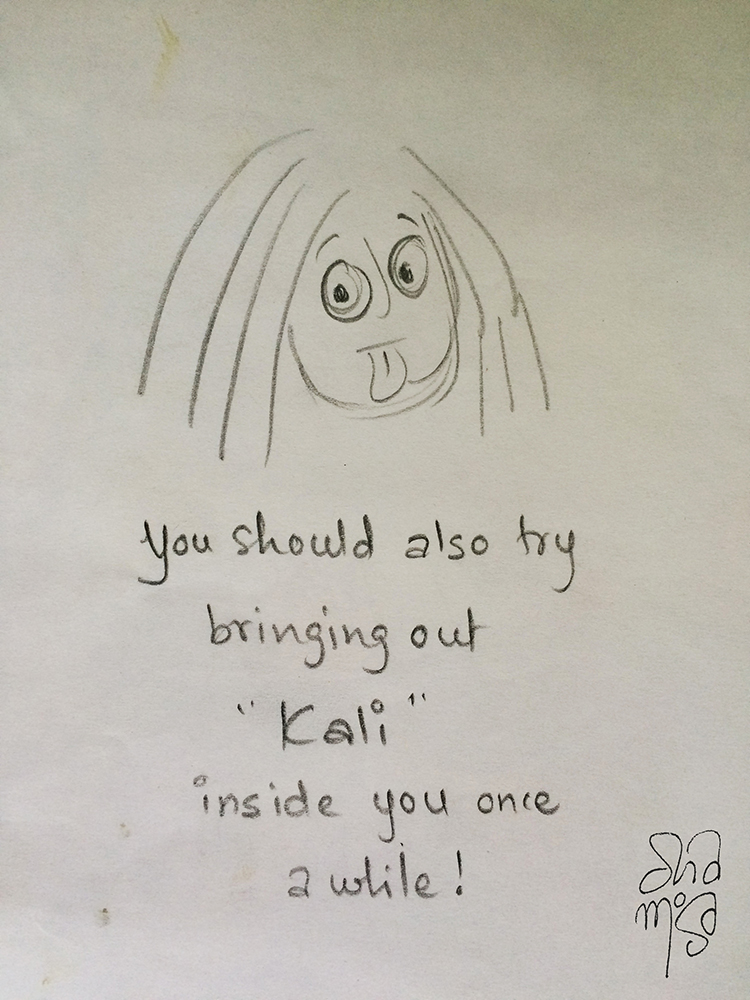 you should also try
bringing out
"Kali"
inside you once
a while!